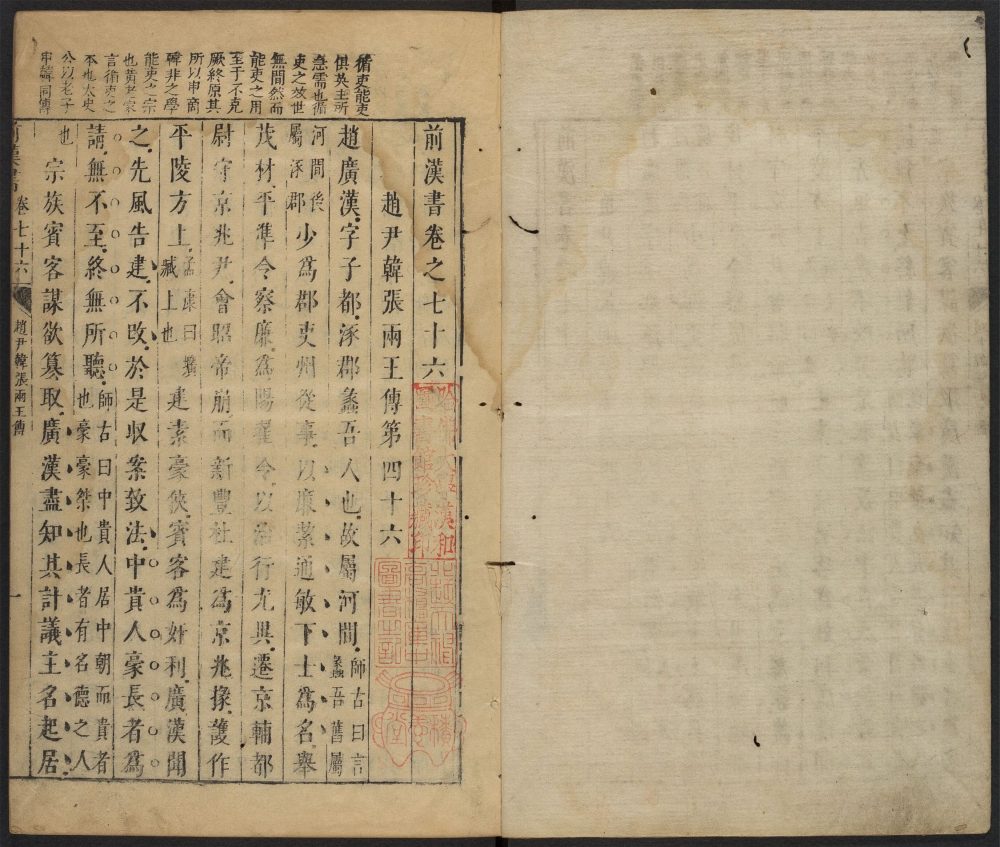 循吏能吏
俱英主所
急需也循
吏之效世
無間然而
能吏之用
至于不克
厥終原其
所以申商
韓非之學
能吏之宗
也黃老家
言循吏之
本也太史
公以老子
申韓同傳
前漢書卷之七十六
趙尹韓張兩王傳第四十六
趙廣漢字子都涿郡蠡吾人也故屬河間師古曰言蠡吾舊屬
河間後屬涿郡少爲郡吏州從事以廉絜通敏下士爲名舉
茂材平準令察廉爲陽翟令以治行尤異遷京輔都
尉守京兆尹會昭帝崩而新豐杜建爲京兆掾護作
平陵方上孟康曰壙臧上也建素豪俠賓客爲姧利廣漢聞
之先風告建不改於是収案致法中貴人豪長者爲
請無不至終無所聽師古曰中貴人居中朝而貴者也豪豪桀也長者有名德之人
也宗族賓客謀欲篡取廣漢盡知其計議主名起居
前漢書 卷七十六 趙尹韓張兩王傳 一
哈佛大學漢和
圖書館珍藏印